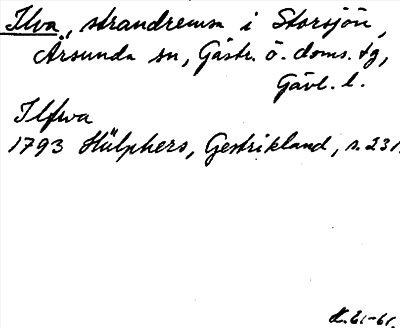 Ilva, strandremsa i Storsjön,
Årsunda sn, Gästr. ö. doms. tg,
Gävl. l.
Ilfwa
1793 Hülphers, Gestrikland, s. 231.